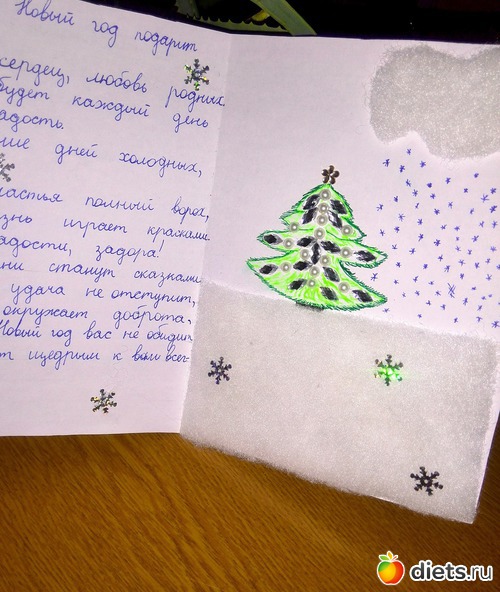 Новый год подарит
сердец, любовь родных
будет каждый день
адость.
ние дней холодных,
частья полный ворох,
знь играет красками
адости, задора!
ни станут сказками
удача не отступит,
окружает доброта,
Новый год вас не обидит
т щедрым к вам всег-
diets.ru